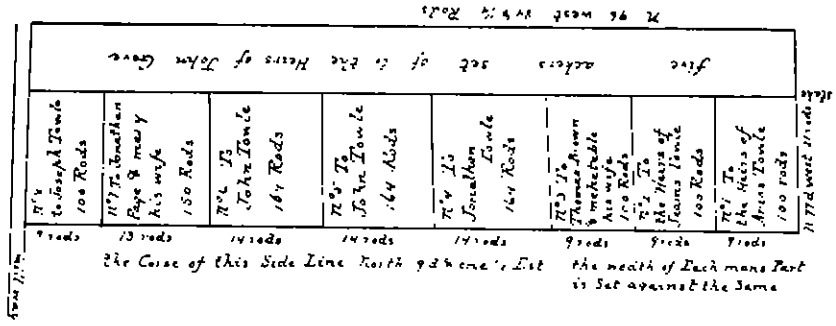 Rods
five ackers set of to the Heirs of John Gove
stake
to Joseph Towle
100 Rods
n°7 To Jonathan
Page & mary
his wife
150 Rods
n°6 To
John Towle
167 Rods
n°5 To
John Towle
164 Rods
n°4 To
Jonathan
Towle
164 Rods
n°3 To
Thomas Brown
& mehetable
his wife
100 Rods
n°2 To
the Heirs of
Towle
100 Rods
n°1 To
the Heirs of
Towle
100 rods
9 rods
13 rods
14 rods
14 rods
14 rods
9 rods
9 rods
9 rods
the Corse of this Side Line North
the
of Each mans Part
is Set against the Same